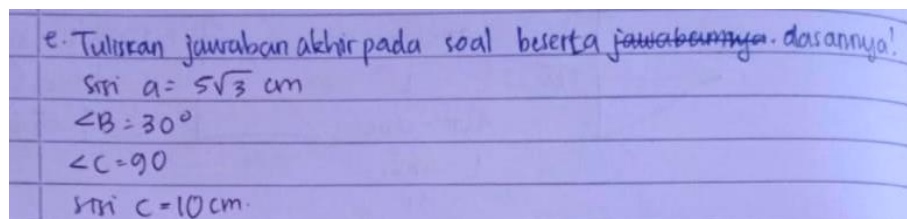 e. Tuliskan jawaban akhir pada soal beserta jawabannya. dasannya!
sisi a = 5√3 cm
∠B = 30°
∠C = 90
sisi c = 10 cm.